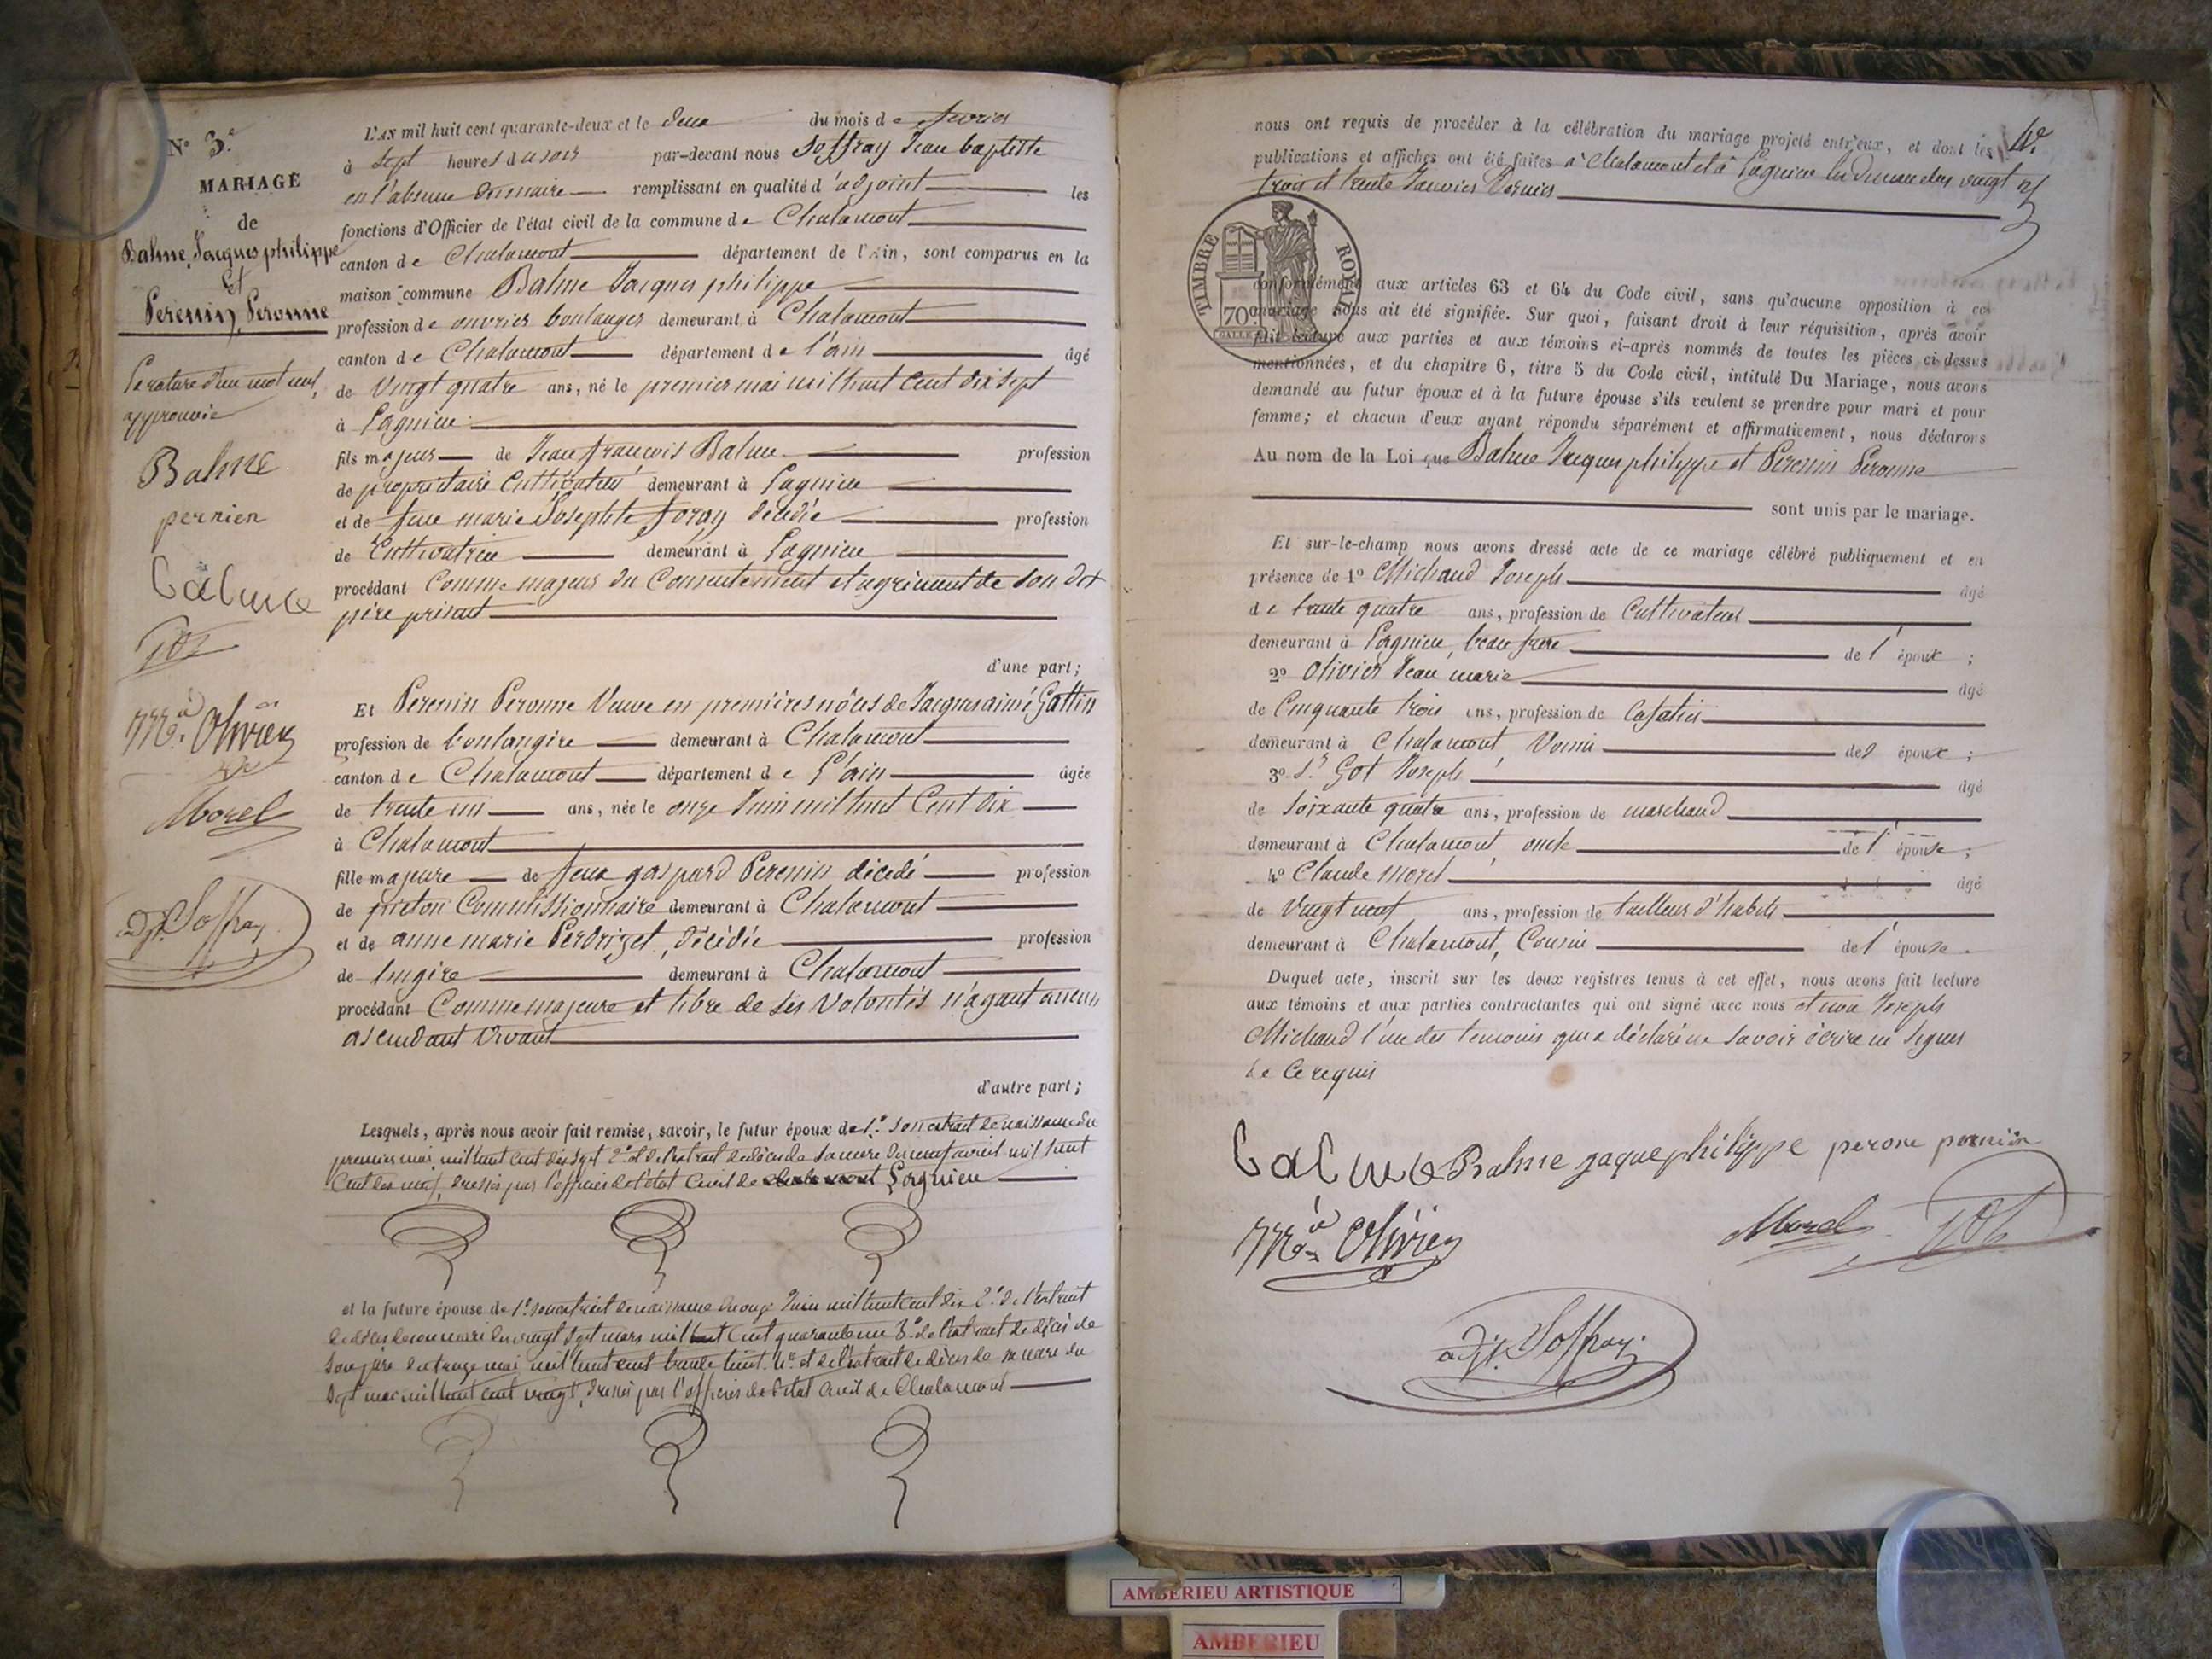 N° 3.e
MARIAGE
de
Balme, Jacques philippe
Et
Perenin, Peronne
La rature d'un mot nul,
approuvée
Balme
pernien
balme
got
Mia Olivier
Morel
adjt Soffray
L'AN mil huit cent quarante-deux et le deux du mois de fevrier
à sept heures du soir par-devant nous Soffray Jean baptiste
en l'absence du maire remplissant en qualité d'adjoint les
fonctions d'Officier de l'état civil de la commune de Chalamont
canton de Chalamont département de l'Ain, sont comparus en la
maison commune Balme Jacques philippe
profession de ouvrier boulanger demeurant à Chalamont
canton de Chalamont département de l'ain âgé
de vingt quatre ans, né le premier mai mil huit cent dix sept
à Lagnieu
fils majeur de Jean françois Balme profession
de propriétaire Cultivateur demeurant à Lagnieu
et de feue marie Josephte foray décédée profession
de Cultivatrice demeurant à Lagnieu
procédant Comme majeur du Consentement et agrément de son dit
père présent
d'une part;
Et Perenin Peronne Veuve en premières nôces de Jacques aimé Gattin
profession de boulangère demeurant à Chalamont
canton de Chalamont département de l'ain âgée
de trente un ans, née le onze Juin mil huit Cent dix
à Chalamont
fille majeure de feux gaspard Perenin décédé profession
de piéton Commissionnaire demeurant à Chalamont
et de anne marie Perdrizet, décédée profession
de lingère demeurant à Chalamont
procédant Comme majeure et libre de ses Volontés n'ayant aucun
asendant Vivant
d'autre part;
Lesquels, après nous avoir fait remise, savoir, le futur époux de 1.° son extrait de naissance du
premier mai mil huit cent dix sept 2.° et de l'extrait de décès de sa mere du neuf avril mil huit
Cent dix neuf, dressés par l'officier de l'état Civil de chalamont Lagnieu
et la future épouse de 1.° son extrait de naissance du onze Juin mil huit cent dix 2.° de l'extrait
de décès de son mari du vingt sept mars mil huit Cent quarante un 3.° de l'extrait de décès de
son père du treize mai mil huit cent trente huit. 4.° et de l'extrait de décès de sa mere du
sept mai mil huit cent vingt, dressés par l'officier de l'état Civil de Chalamont
4e
nous ont requis de procéder à la célébration du mariage projeté entr'eux, et dont les
publications et affiches ont été faites à Chalamont et à Lagnieu les dimanches vingt
trois et trente Janvier dernier
TIMBRE ROYAL
70c
conformément aux articles 63 et 64 du Code civil, sans qu'aucune opposition à ce
mariage nous ait été signifiée. Sur quoi, faisant droit à leur réquisition, après avoir
fait lecture aux parties et aux témoins ci-après nommés de toutes les pièces ci-dessus
mentionnées, et du chapitre 6, titre 5 du Code civil, intitulé Du Mariage, nous avons
demandé au futur époux et à la future épouse s'ils veulent se prendre pour mari et pour
femme; et chacun d'eux ayant répondu séparément et affirmativement, nous déclarons
Au nom de la Loi que Balme Jacques philippe et Perenin Peronne
sont unis par le mariage.
Et sur-le-champ nous avons dressé acte de ce mariage célébré publiquement et en
présence de 1° Michaud Joseph âgé
de trente quatre ans, profession de Cultivateur
demeurant à Lagnieu, beau frere de l'époux;
2° Olivier Jean marie âgé
de Cinquante trois ans, profession de Cafatier
demeurant à Chalamont, Voisin des époux;
3° Sr Got Joseph âgé
de Soixante quatre ans, profession de marchand
demeurant à Chalamont, oncle de l'épouse;
4° Claude Morel âgé
de Vingt neuf ans, profession de tailleur d'habits
demeurant à Chalamont, Cousin de l'épouse.
Duquel acte, inscrit sur les deux registres tenus à cet effet, nous avons fait lecture
aux témoins et aux parties contractantes qui ont signé avec nous et non Joseph
Michaud l'un des temoins qui a déclaré ne savoir écrire ni signer
de Ce requis
balme Balme jaque philippe perone pernien
Mia Olivier Morel got
adjt. Soffray
AMBERIEU ARTISTIQUE
AMBERIEU